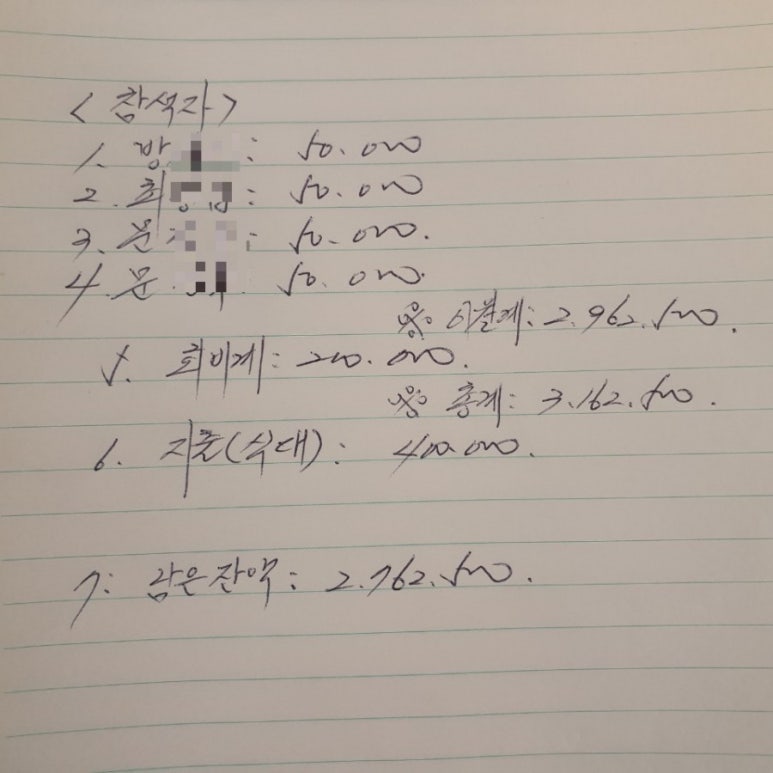 <참석자>
1. 방 : 50.000
2. 최 : 50.000
3. 문 : 50.000.
4. 문 50.000.
※ 이월계: 2.962.500.
5. 회비계: 200.000.
※ 총계: 3.162.500.
6. 지출(식대): 400.000.
7: 남은잔액: 2.762.500.